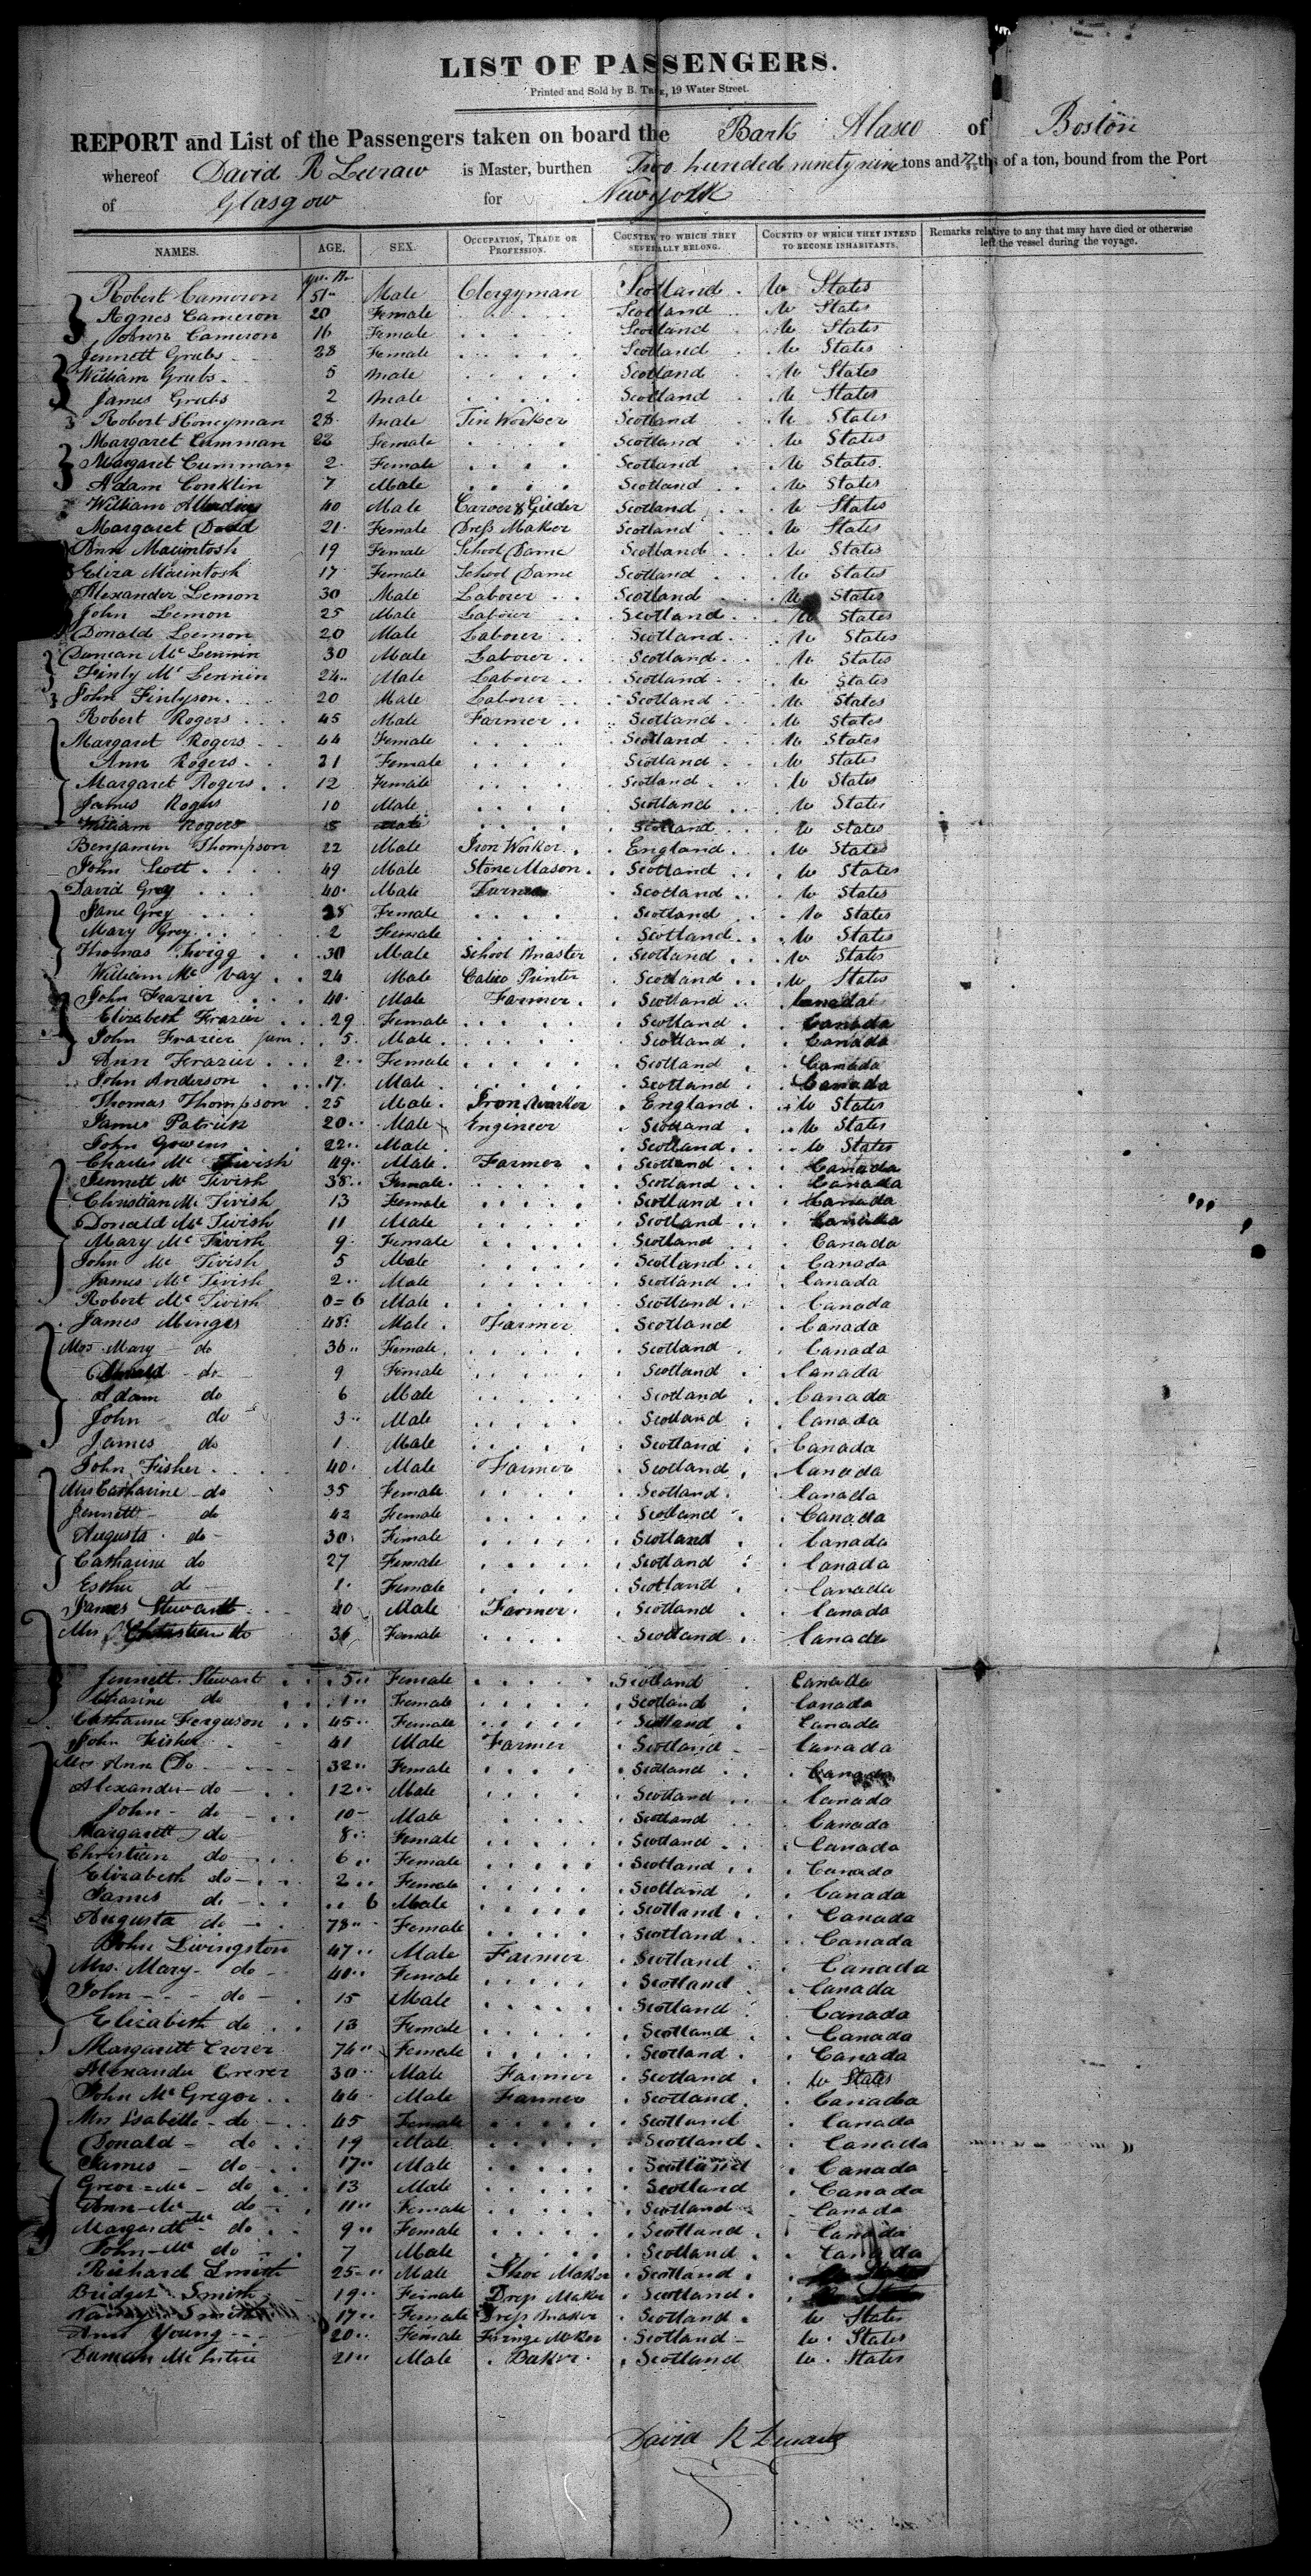 LIST OF PASSENGERS.
Printed and Sold by B. 19 Water Street.
REPORT and List of the Passengers taken on board the Bark Alasco of Boston
whereof David R is Master, burthen Two hundred ninety nine tons and ths of a ton, bound from the Port
of Glasgow for New York
NAMES. AGE. SEX. OCCUPATION, TRADE OR PROFESSION. COUNTRY TO WHICH THEY SEVERALLY BELONG. COUNTRY OF WHICH THEY INTEND TO BECOME INHABITANTS. Remarks relative to any that may have died or otherwise left the vessel during the voyage.
Robert Cameron 51 Male Clergyman Scotland U States
Agnes Cameron 20 Female Scotland U States
Ann Cameron 16 Female Scotland U States
Jennett Grubs 28 Female Scotland U States
William Grubs 5 Male Scotland U States
James Grubs 2 Male Scotland U States
Robert Honeyman 28 Male Tin Worker Scotland U States
Margaret Cumman 22 Female Scotland U States
Margaret Cumman 2 Female Scotland U States
Adam Conklin 7 Male Scotland U States
William 40 Male Carver & Gilder Scotland U States
Margaret Dodd 21 Female Dress Maker Scotland U States
Ann Macintosh 19 Female School Dame Scotland U States
Eliza Macintosh 17 Female School Dame Scotland U States
Alexander Lemon 30 Male Laborer Scotland U States
John Lemon 25 Male Laborer Scotland U States
Donald Lemon 20 Male Laborer Scotland U States
Duncan Mc Lennin 30 Male Laborer Scotland U States
Finly Mc Lennin 24 Male Laborer Scotland U States
John Finlyson 20 Male Laborer Scotland U States
Robert Rogers 45 Male Farmer Scotland U States
Margaret Rogers 44 Female Scotland U States
Ann Rogers 21 Female Scotland U States
Margaret Rogers 12 Female Scotland U States
James Rogers 10 Male Scotland U States
William Rogers 8 Male Scotland U States
Benjamin Thompson 22 Male Iron Worker England U States
John Scott 49 Male Stone Mason Scotland U States
David Grey 40 Male Farmer Scotland U States
Jane Grey 28 Female Scotland U States
Mary Grey 2 Female Scotland U States
Thomas Twigg 30 Male School Master Scotland U States
William Mc Vay 24 Male Calico Printer Scotland U States
John Frazier 40 Male Farmer Scotland Canada
Elizabeth Frazier 29 Female Scotland Canada
John Frazier Jun 5 Male Scotland Canada
Ann Frazier 2 Female Scotland Canada
John Anderson 17 Male Scotland Canada
Thomas Thompson 25 Male Iron Worker England U States
James Patrick 20 Male Engineer Scotland U States
John Gowens 22 Male Scotland U States
Charles Mc Tivish 49 Male Farmer Scotland Canada
Jennett Mc Tivish 38 Female Scotland Canada
Christian Mc Tivish 13 Female Scotland Canada
Donald Mc Tivish 11 Male Scotland Canada
Mary Mc Tivish 9 Female Scotland Canada
John Mc Tivish 5 Male Scotland Canada
James Mc Tivish 2 Male Scotland Canada
Robert Mc Tivish 0=6 Male Scotland Canada
James Minges 48 Male Farmer Scotland Canada
Mrs Mary do 36 Female Scotland Canada
do 9 Female Scotland Canada
Adam do 6 Male Scotland Canada
John do 3 Male Scotland Canada
James do 1 Male Scotland Canada
John Fisher 40 Male Farmer Scotland Canada
Mrs Catharine do 35 Female Scotland Canada
Jennett do 42 Female Scotland Canada
Augusta do 30 Female Scotland Canada
Catharine do 27 Female Scotland Canada
Esther do 1 Female Scotland Canada
James Stewartt 40 Male Farmer Scotland Canada
Mrs Christian do 36 Female Scotland Canada
Jennett Stewart 5 Female Scotland Canada
do 1 Female Scotland Canada
Catharine Ferguson 45 Female Scotland Canada
John Fisher 41 Male Farmer Scotland Canada
Mrs Ann Do 32 Female Scotland Canada
Alexander do 12 Male Scotland Canada
John do 10 Male Scotland Canada
Margarett do 8 Female Scotland Canada
Christian do 6 Female Scotland Canada
Elizabeth do 2 Female Scotland Canada
James do 6 Male Scotland Canada
Augusta do 78 Female Scotland Canada
John Livingston 47 Male Farmer Scotland Canada
Mrs. Mary do 40 Female Scotland Canada
John do 15 Male Scotland Canada
Elizabeth do 13 Female Scotland Canada
Margarett Crerer 74 Female Scotland Canada
Alexander Crerer 30 Male Farmer Scotland U States
John Mc Gregor 44 Male Farmer Scotland Canada
Mrs Isabella do 45 Female Scotland Canada
Donald do 19 Male Scotland Canada
James do 17 Male Scotland Canada
Greor Mc do 13 Male Scotland Canada
Ann Mc do 11 Female Scotland Canada
Margarett Mc do 9 Female Scotland Canada
John Mc do 7 Male Scotland Canada
Richard Smith 25 Male Shoe Maker Scotland U States
Bridget Smith 19 Female Dress Maker Scotland U States
Smith 17 Female Dress Maker Scotland U States
Ann Young 20 Female Fringe Maker Scotland U. States
Duncan Mc Intire 21 Male Baker Scotland U. States
David R